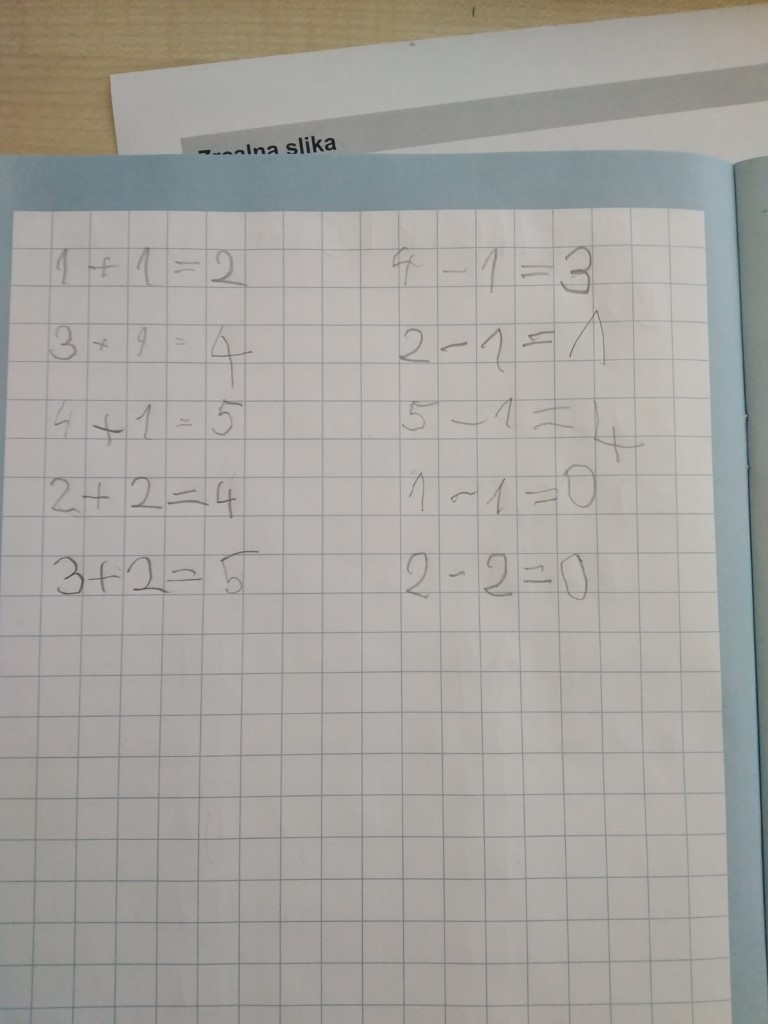 Zrcalna slika
1 + 1 = 2
3 + 1 = 4
4 + 1 = 5
2 + 2 = 4
3 + 2 = 5
4 - 1 = 3
2 - 1 = 1
5 - 1 = 4
1 - 1 = 0
2 - 2 = 0